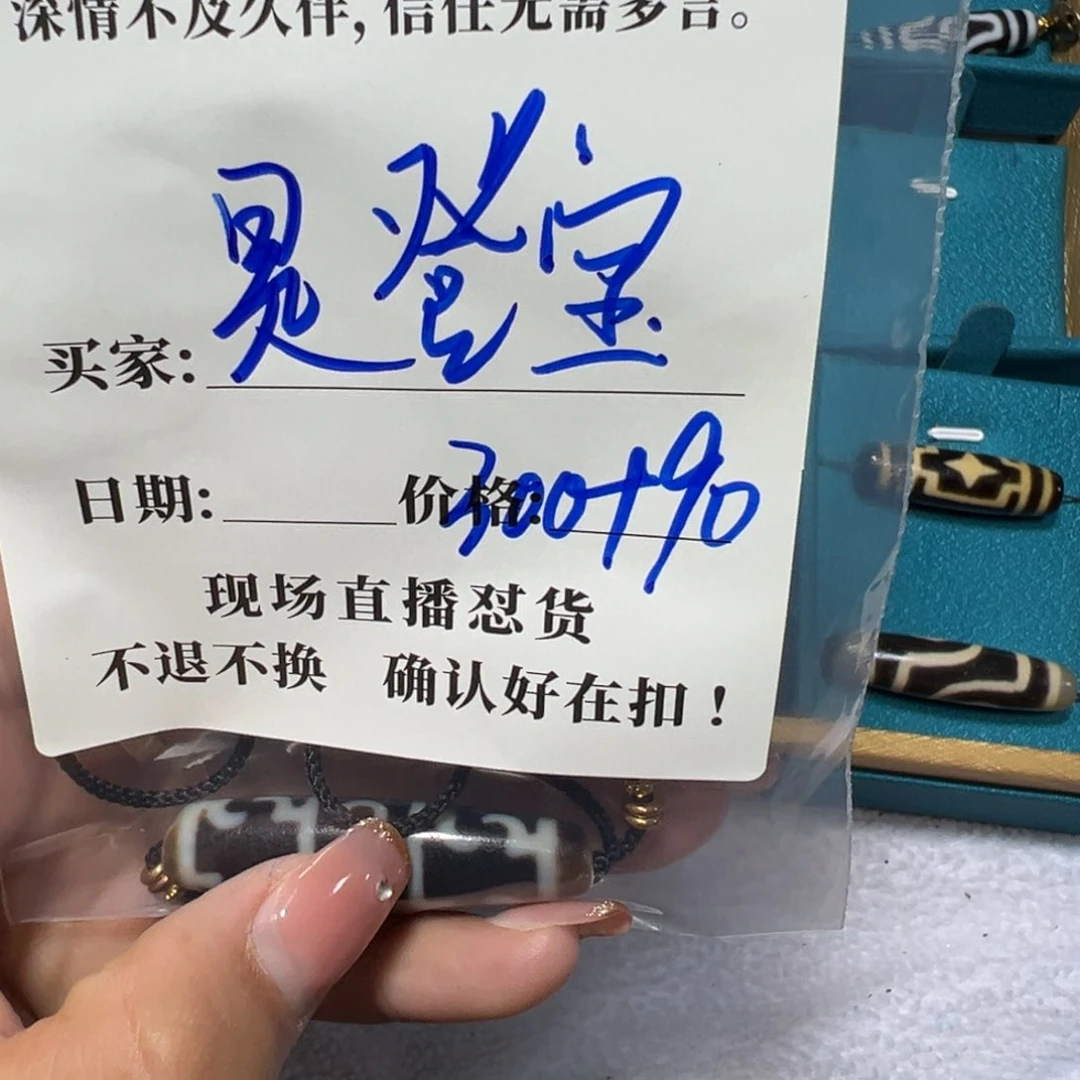 深情不及久伴，信任无需多言。
买家：
日期： 价格：300+90
现场直播怼货
不退不换 确认好在扣！